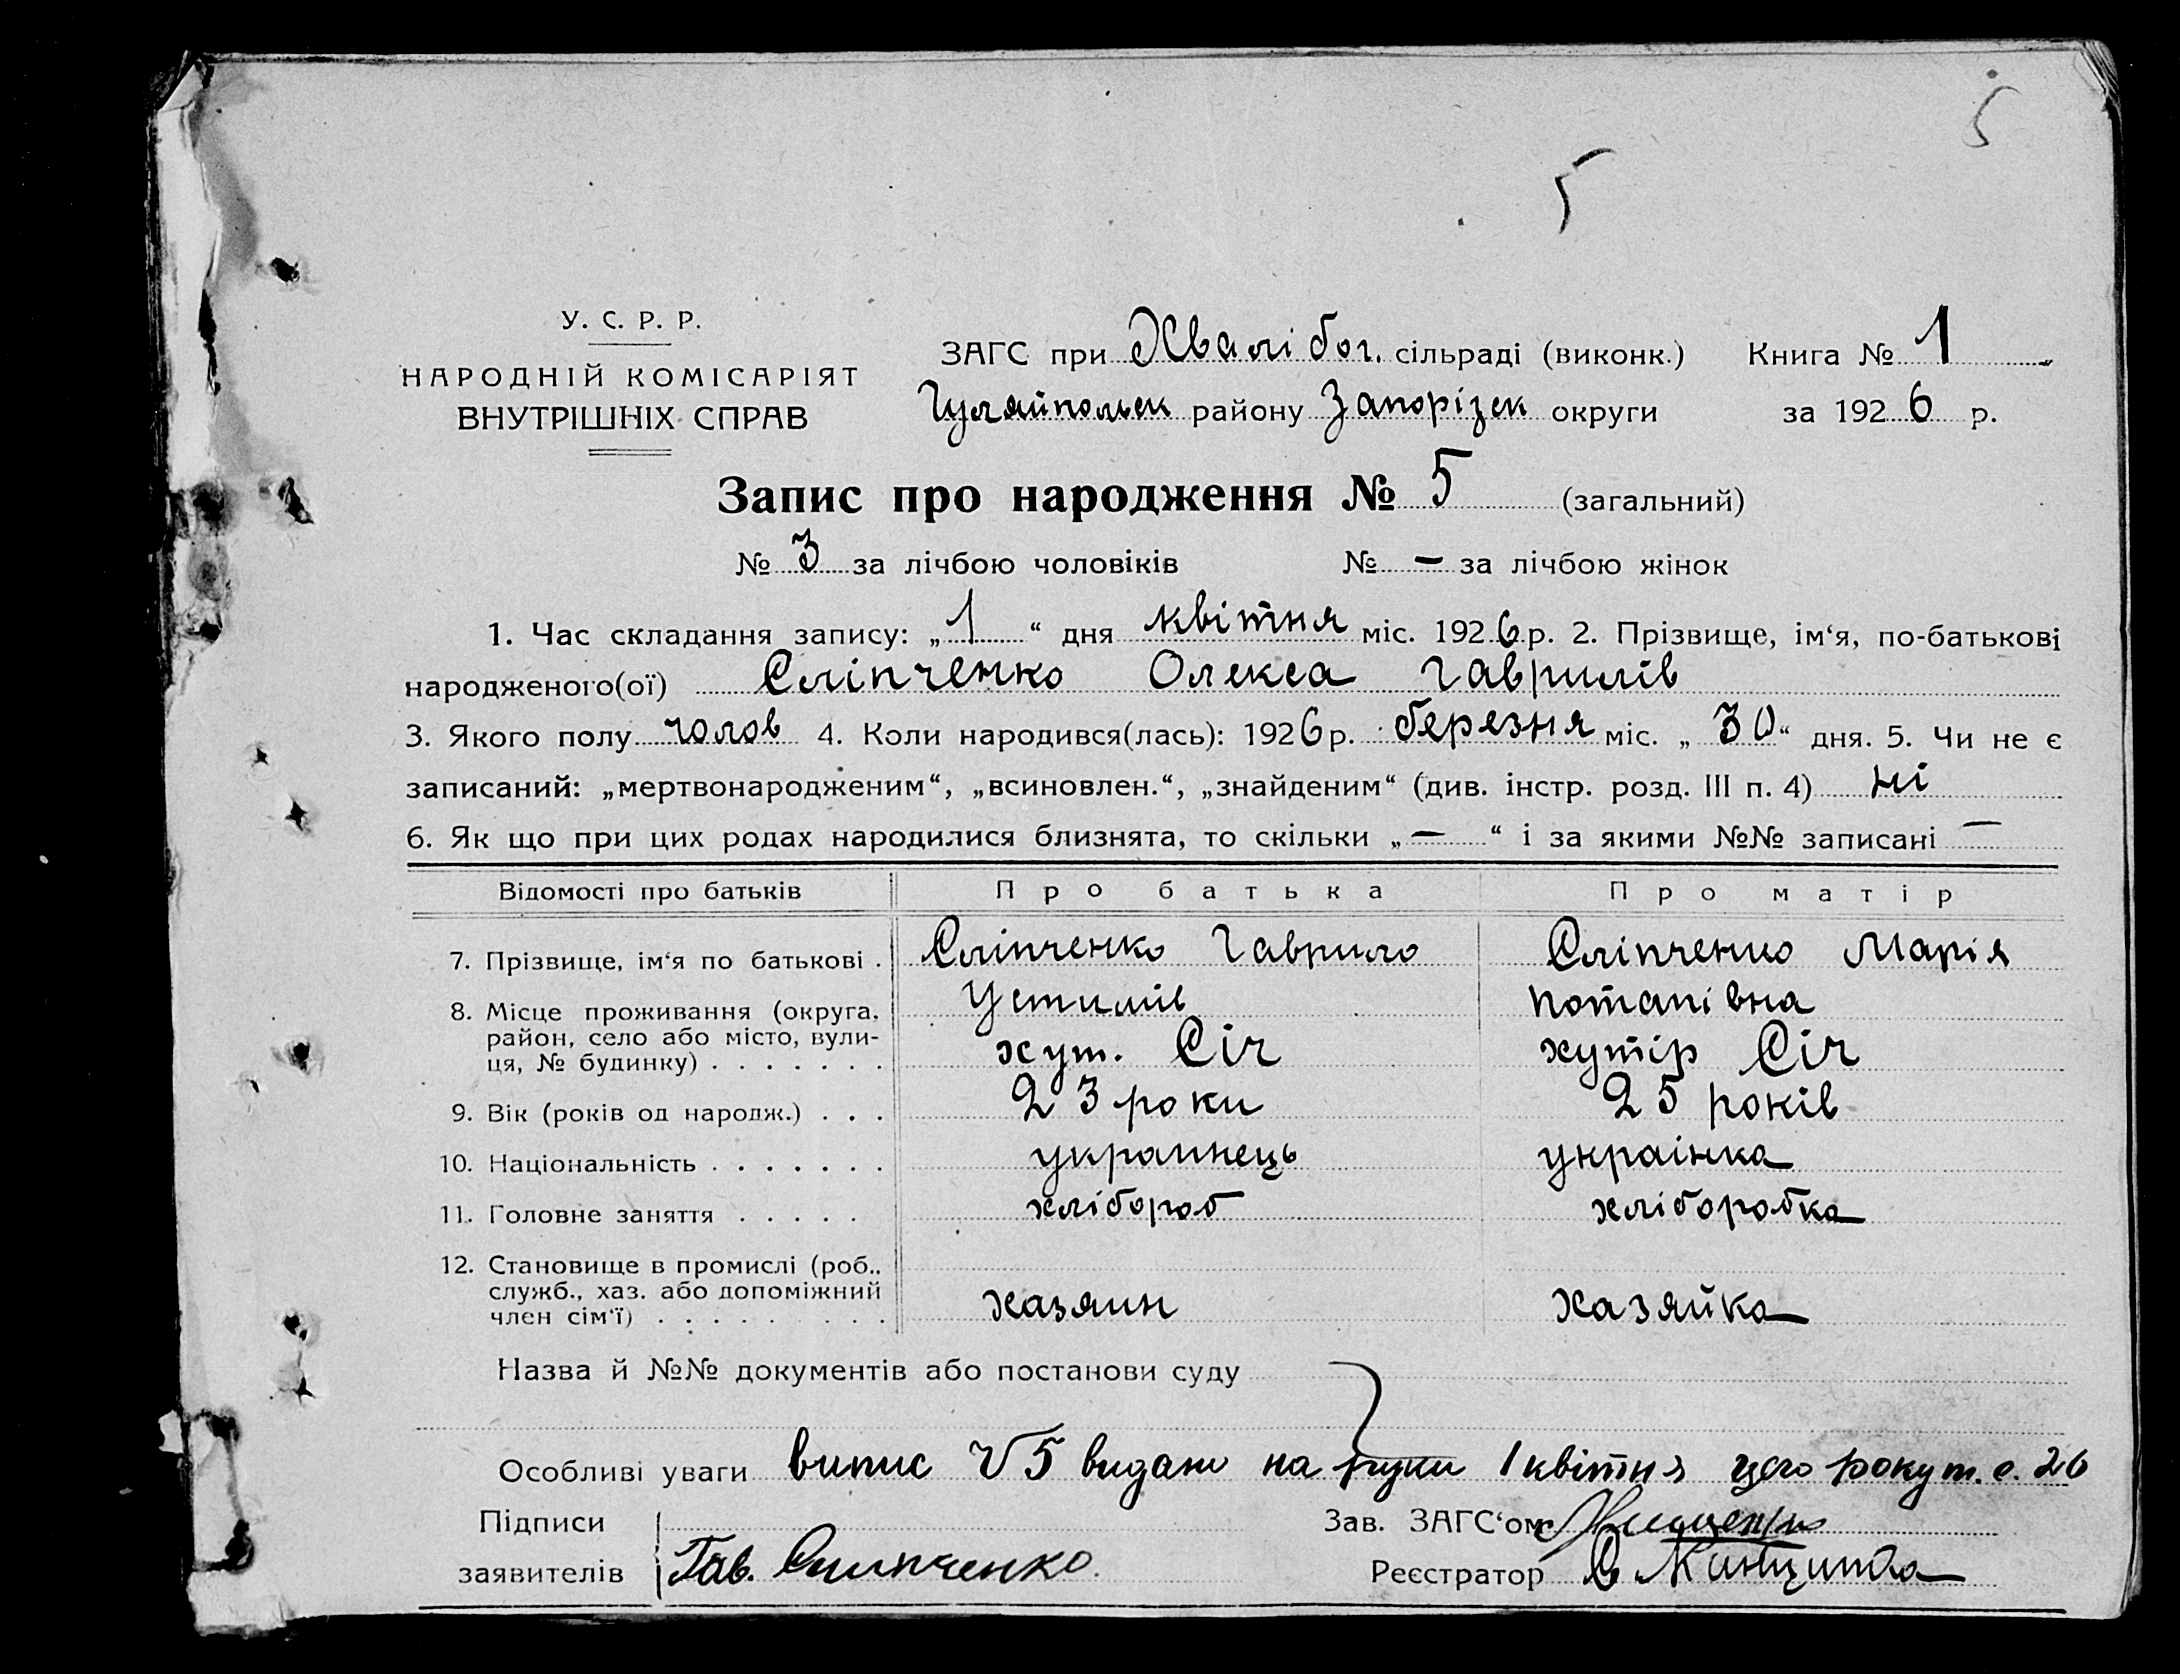 5
5
У. С. Р. Р.
НАРОДНІЙ КОМІСАРІЯТ
ВНУТРІШНІХ СПРАВ
ЗАГС при Хвалібог. сільраді (виконк.) Книга № 1
Гуляйпольск району Запорізск округи за 1926 р.
Запис про народження № 5 (загальний)
№ 3 за лічбою чоловіків № — за лічбою жінок
1. Час складання запису: „1“ дня квітня міс. 1926 р. 2. Прізвище, ім‘я, по-батькові
народженого(ої) Сліпченко Олекса Гаврилів
3. Якого полу чолов 4. Коли народився(лась): 1926 р. березня міс. „30“ дня. 5. Чи не є
записаний: „мертвонародженим“, „всиновлен.“, „знайденим“ (див. інстр. розд. III п. 4) ні
6. Як що при цих родах народилися близнята, то скільки „—“ і за якими №№ записані —
Відомості про батьків Про батька Про матір
7. Прізвище, ім‘я по батькові . Сліпченко Гаврило Сліпченко Марія
8. Місце проживання (округа, Устимів Потапівна
район, село або місто, вули-
ця, № будинку) . . . . . . . хут. Січ хутір Січ
9. Вік (років од народж.) . . . 23 роки 25 років
10. Національність . . . . . . . украинець украінка
11. Головне заняття . . . . . хлібороб хліборобка
12. Становище в промислі (роб.,
служб., хаз. або допоміжний
член сім‘ї) . . . . . . . . . хазяин хазяйка
Назва й №№ документів або постанови суду
Особливі уваги випис Ч 5 видано на руки 1 квітня цего року т. с. 26
Підписи Зав. ЗАГС‘ом
заявителів Гав. Слипченко. Реєстратор С